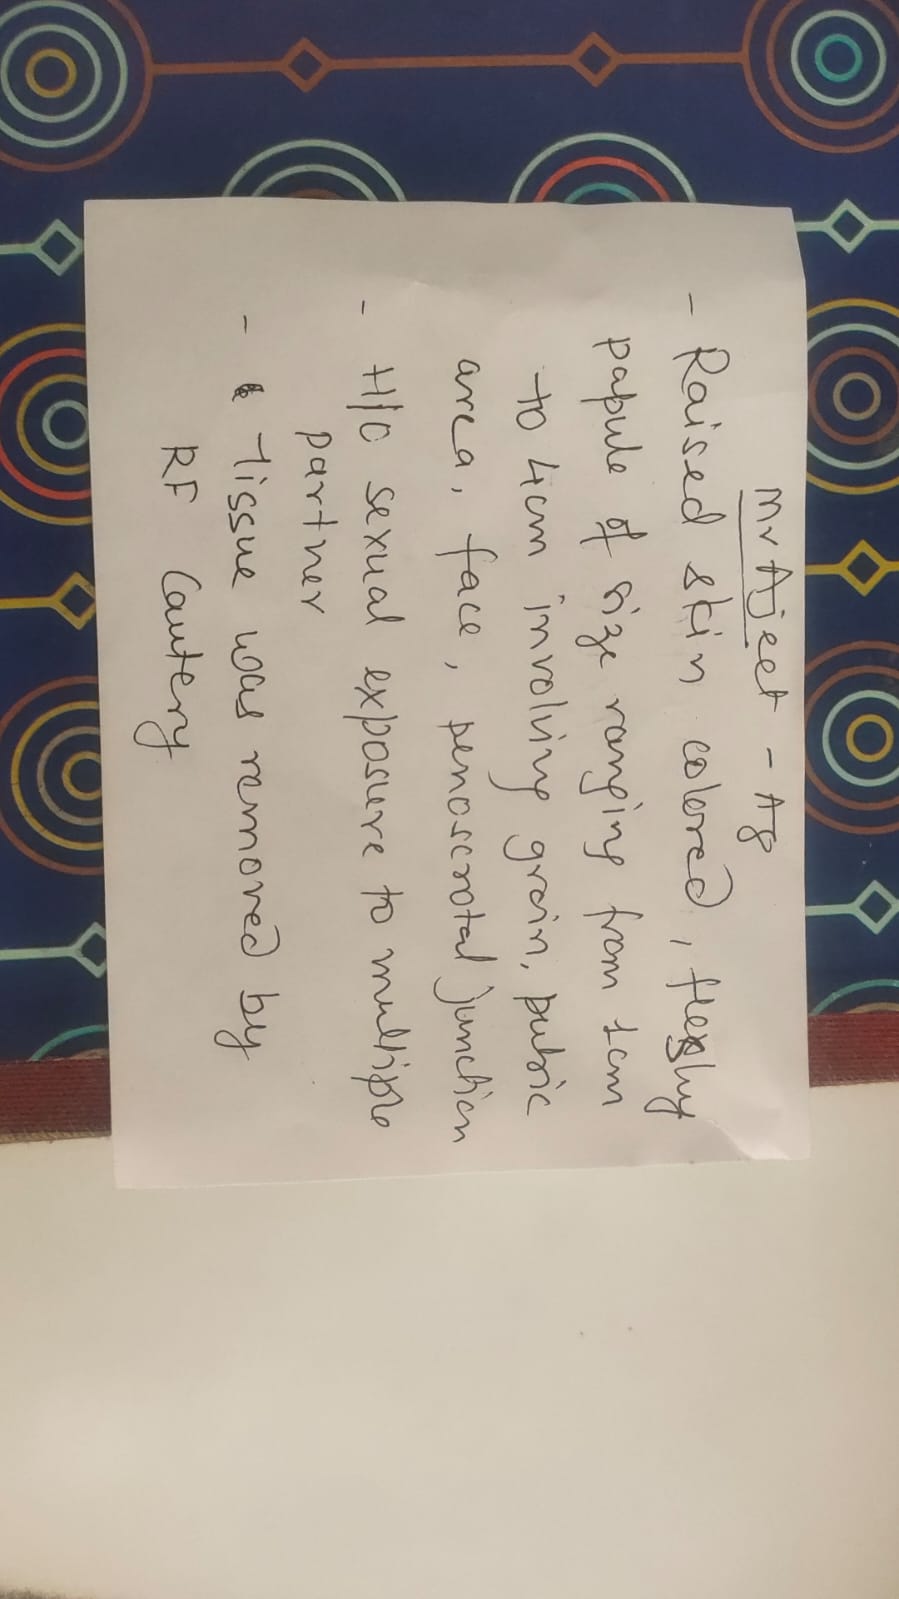 Mr Ajeet - A8
- Raised skin colored, fleshy
papule of size ranging from 1cm
to 4cm involving groin, pubic
area, face, penoscrotal junction
- H/o sexual exposure to multiple
partner
- Tissue was removed by
RF Cautery